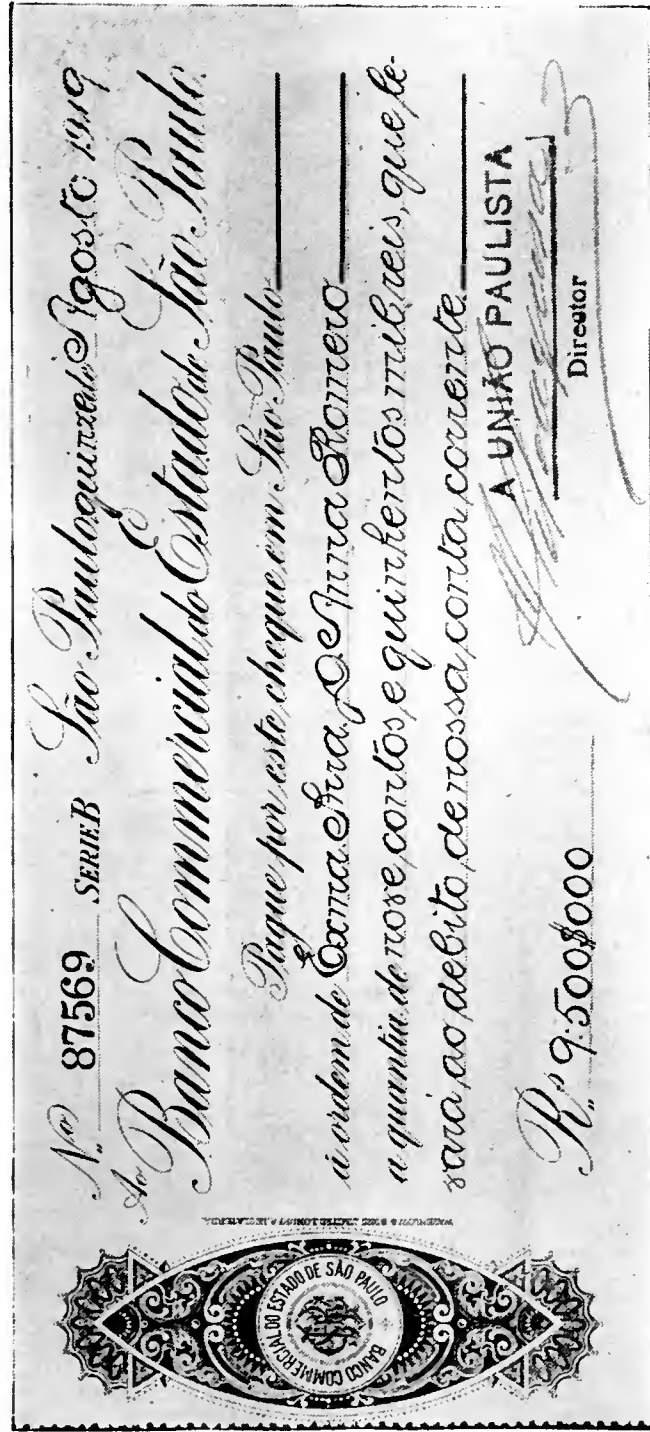 Nº 87569 SERIE B São Paulo, quinze de Agosto 1919
Ao Banco Commercial do Estado de São Paulo
Pague por este cheque em São Paulo
á ordem de Exma Snra D. Anna Romero
a quantia de nove contos e quinhentos mil reis, que le-
vará ao debito de nossa conta corrente
A UNIÃO PAULISTA
Director
Rs 9:500$000
BANCO COMMERCIAL DO ESTADO DE SÃO PAULO
WATERLOW & SONS LIMITED, LONDON